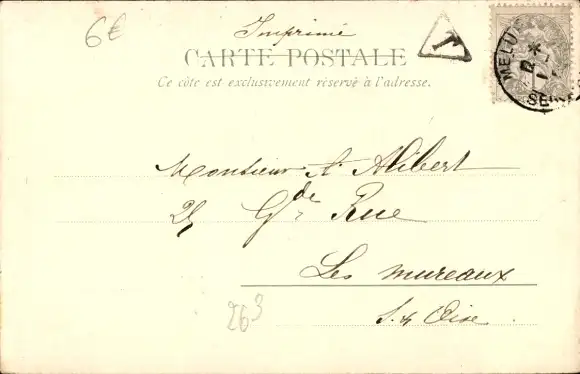 6€
Imprimé
CARTE POSTALE
Ce côté est exclusivement réservé à l'adresse.
T
MELUN
SEINE
Monsieur A. Alibert
25 Gde Rue
Les mureaux
S. & Oise
263